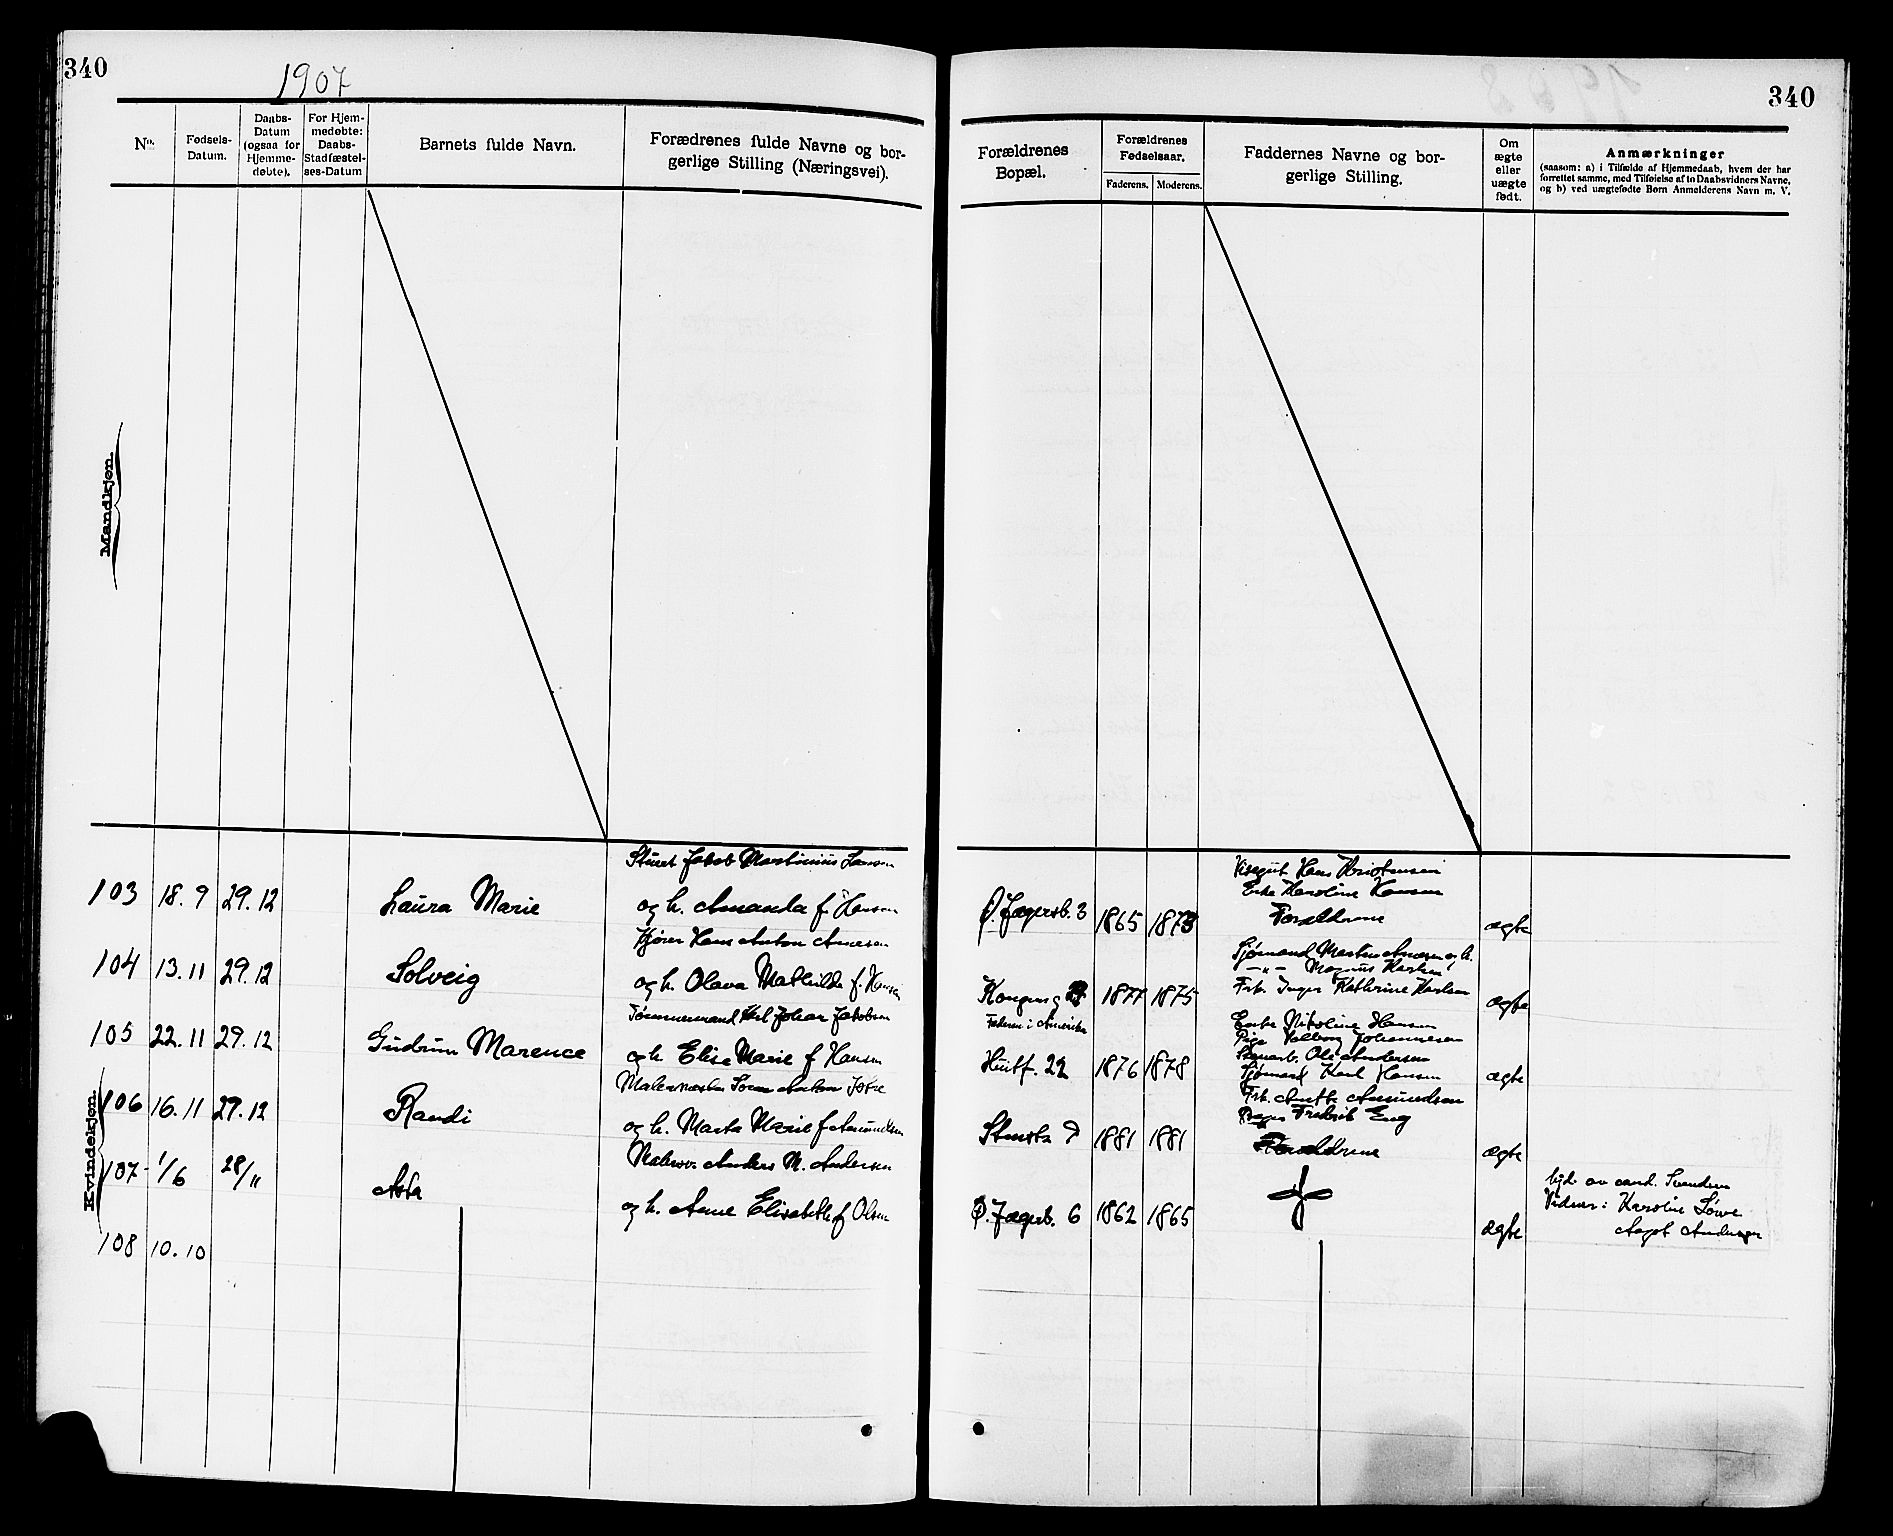 340
1907
No.
Fødsels-
Datum.
Daabs-
Datum
(ogsaa for
Hjemme-
døbte).
For Hjem-
medøbte:
Daabs-
Stadfæstel-
ses-Datum
Barnets fulde Navn.
Forædrenes fulde Navne og bor-
gerlige Stilling (Næringsvei).
Mandkjøn.
Kvindekjøn.
Jakob Martinius
103 18.9 29.12 Laura Marie og h. Amanda f. Hansen
Hans Anton
104 13.11 29.12 Solveig og h. Olava Mathilde f. Hansen
Tømmermand Karl Johan Jakobsen
105 22.11 29.12 Gudrun Marence og h. Elise Marie f Hansen
Malermester Anton
106 16.11 29.12 Randi og h. Marta Marie f Amundsen
Anders M. Andersen
107 1/6 28/11 Asta og h. Anne Elisabeth f Olsen
108 10.10
340
Forældrenes
Bopæl.
Forældrenes
Fødselsaar.
Faderens. Moderens.
Faddernes Navne og bor-
gerlige Stilling.
Om
ægte
eller
uægte
født.
Anmærkninger
(saasom: a) i Tilfælde af Hjemmedaab, hvem der har
forrettet samme, med Tilføielse af to Daabsvidners Navne,
og b) ved uægtefødte Børn Anmelderens Navn m. V.
Hans Kristensen
Enke Karoline Hansen
Ø. Jægersb. 3 1865 1873 Forældrene ægte
Sjømand og h.
Magnus Karlsen
Kongensg 1877 1875 Frk. Inger Kathrine Karlsen ægte
Faderen i Amerika
Enke Nikoline Hansen
Pige Valborg Johannesen
Ole Andersen
Huitf. 22 1876 1878 Sjømand Karl Hansen ægte
Frk. Amundsen
Fredrik Eng
1881 1881 Forældrene ægte
Ø. Jægersb. 6 1862 1865 ægte
av cand. Svendsen
Vidner: Karoline Løwe
Aagot Andersen